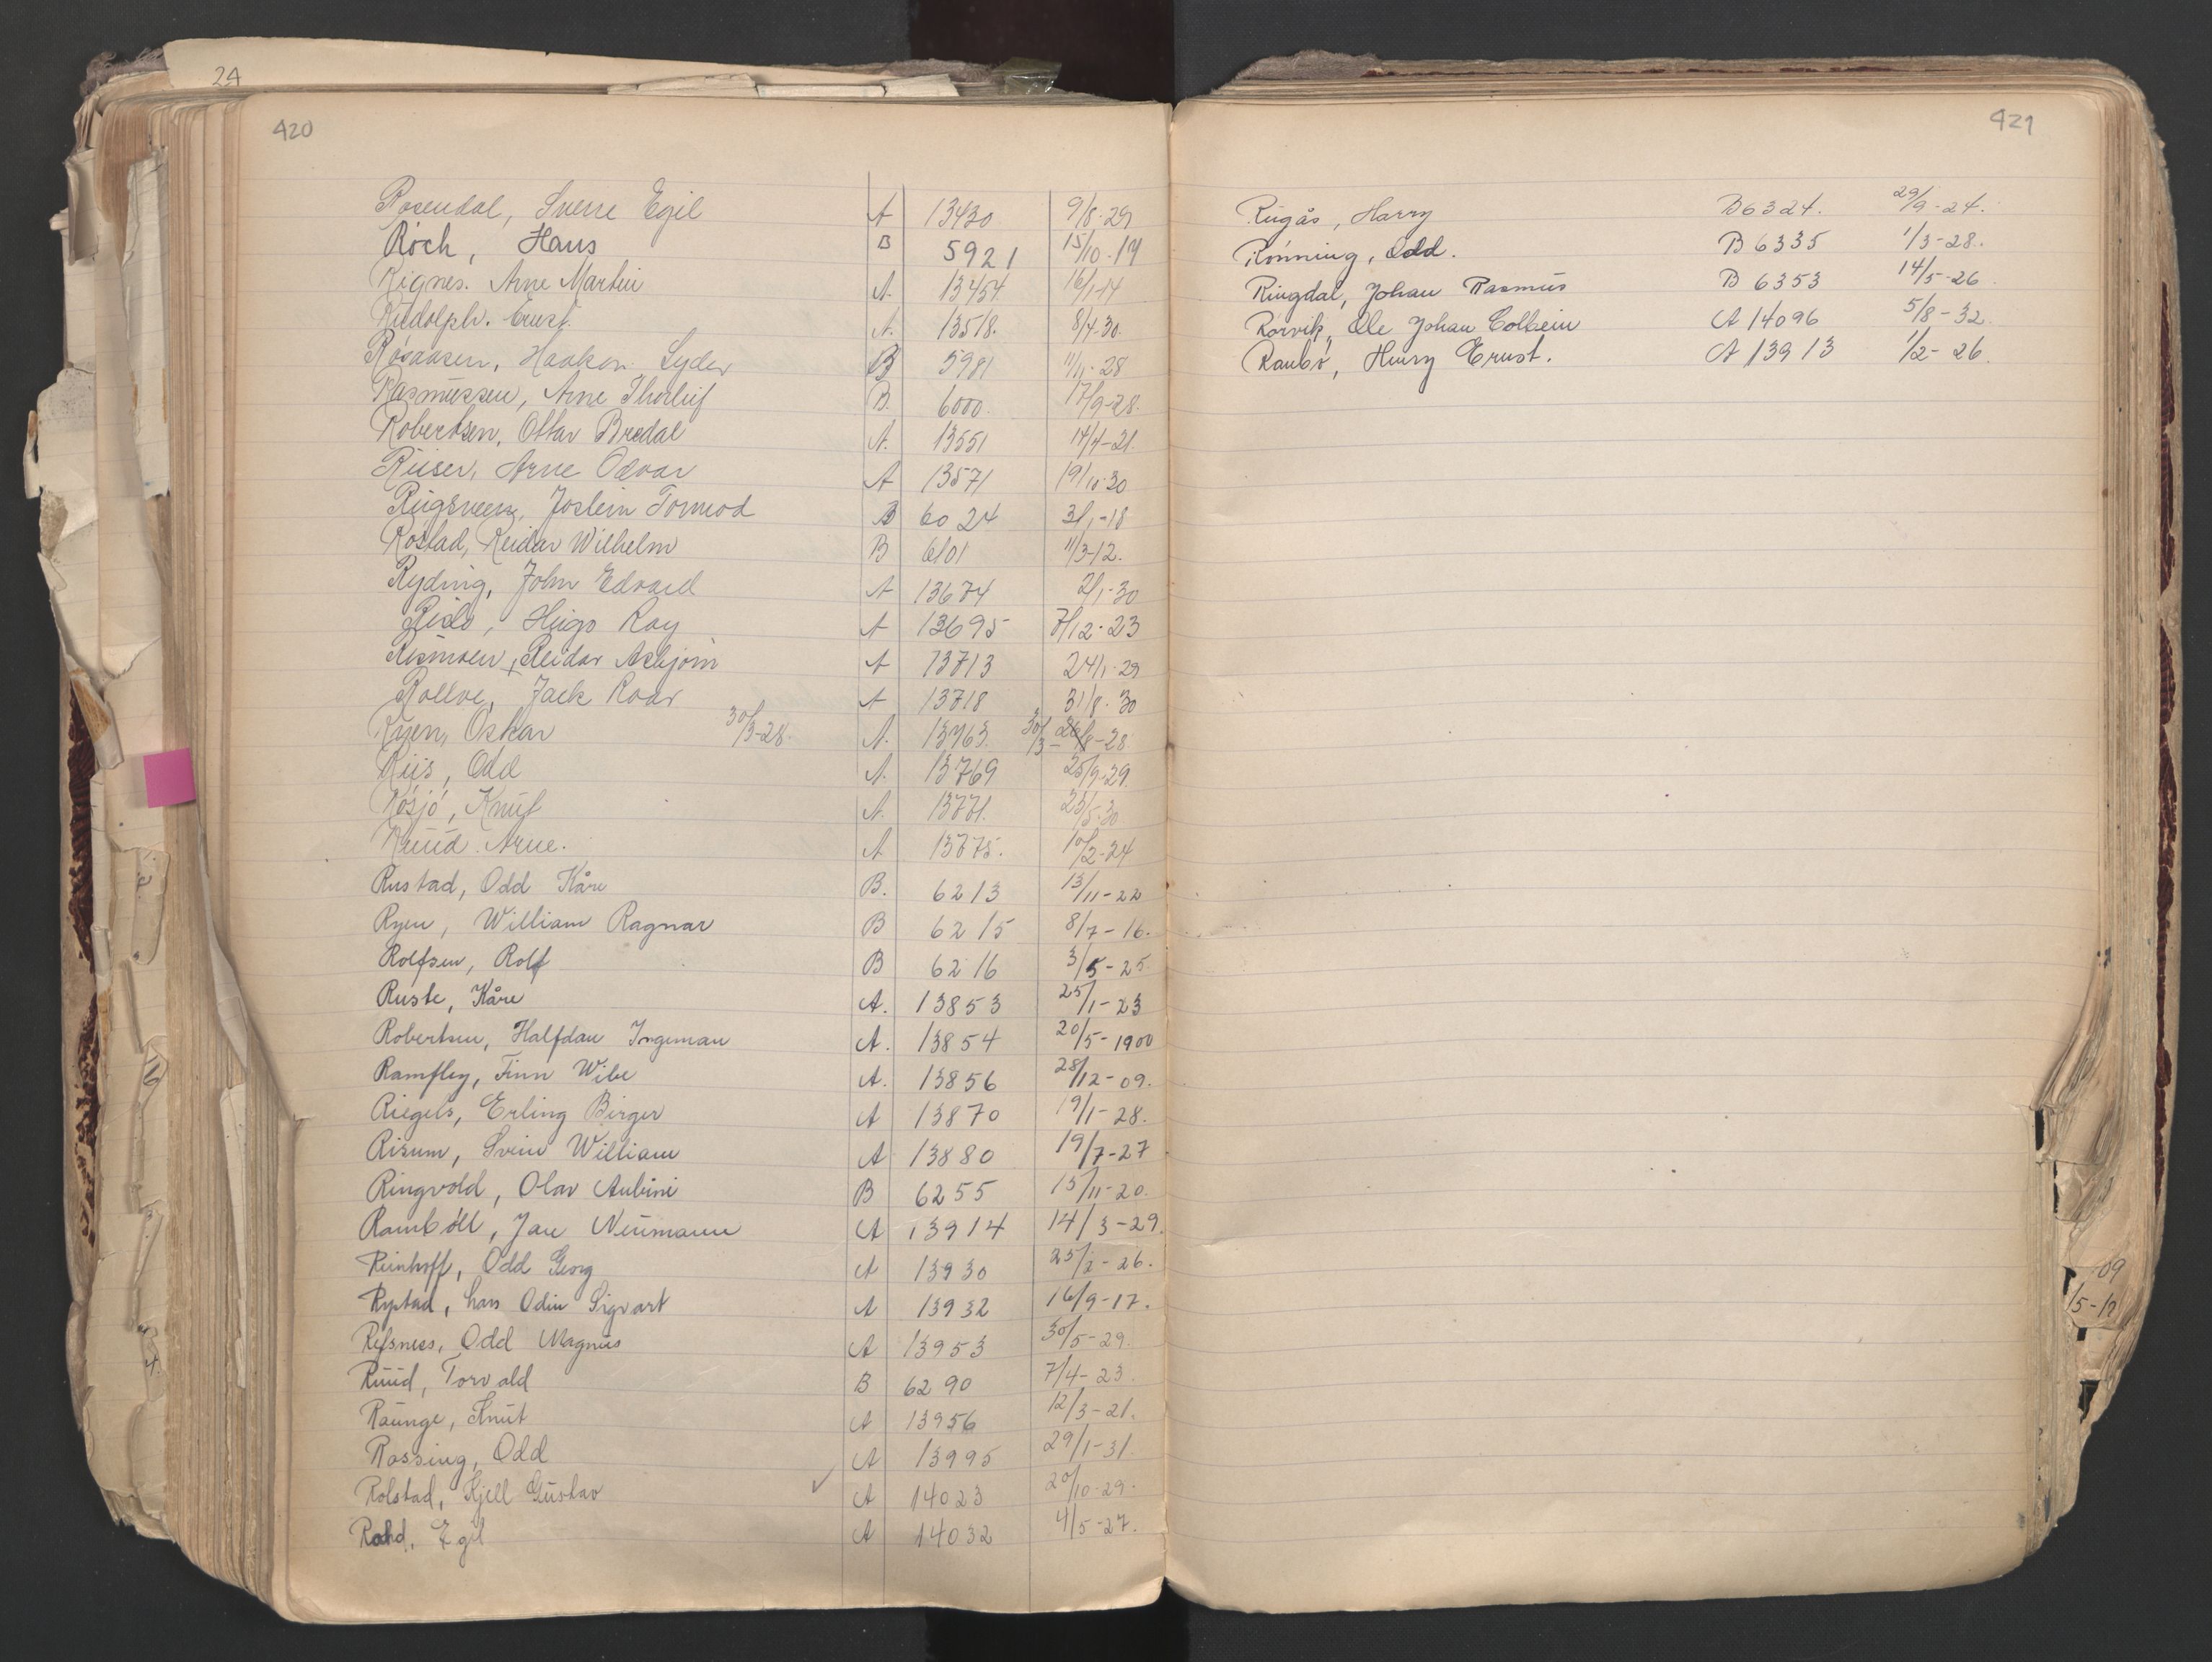 24
420
Rosendal, Sverre Egil A 13430 9/8-29
Roch, Hans B 5921 15/10-19
Rignes. Arne Martin A. 13454 16/1-14
Rudolph. Ernst A. 13518. 8/4-30.
Haakon Lyder B 5981 11/11-28
Rasmussen, Arne Thorleif B. 6000. 17/9-28.
Robertsen, Ottar Bredal A. 13551 14/4-21.
Riiser, Arne Odvar A 13571 19/10-30
Tormod B 6024 3/1-18
Rostad, Reidar Wilhelm B 6101 11/3-12.
Ryding, John Edvard A 13674 2/1-30
Hugo Ray A 13695 7/12-23
Reidar Asbjörn A 13713 24/1-29
Rollve, Jack Roar A 13718 31/8-30
Ryen, Oskar 30/3-28. A. 13763. 30/3- 26/8-28
Riis, Odd A. 13769 25/9-29.
Rösjö, Knut A. 13771. 23/5-30
Ruud. Arne. A 13775. 10/2-24
Rustad, Odd Kåre B. 6213 13/11-22
Ryen, William Ragnar B 6215 8/7-16.
Rolfsen, Rolf B 6216 3/5-25.
Ruste, Kåre A. 13853 25/1-23
Robertsen, Halfdan Ingeman A. 13854 20/5-1900
Ramfley, Finn Wibe A. 13856 28/12-09.
Riegels, Erling Birger A 13870 19/1-28.
Risum, Svein William A 13880 19/7-27
Ringvold, Olav B 6255 15/11-20.
Ramböll, Jan Neumann A 13914 14/3-29.
Reinhoff, Odd Georg A 13930 25/2-26.
Rystad, Lars Odin Sigvart A 13932 16/9-17.
Refsness, Odd Magnus A 13953 30/5-29.
Ruud, Torvald B 6290 7/4-23.
Raunge, Knut A 13956 12/3-21.
Rossing, Odd A 13995 29/1-31
Rolstad, Kjell Gustav ✓ A 14023 20/10-29.
Egil A 14032 4/5-27.
421
Harry B6324. 29/9-24.
Rönning, Odd. B 6335 1/3-28.
Ringdal, Johan Rasmus B 6353 14/5-26
Rörvik, Ole Johan Colbein A 14096 5/8-32.
Raubö, Henry Ernst. A 13913 1/2-26.
09
/5-12